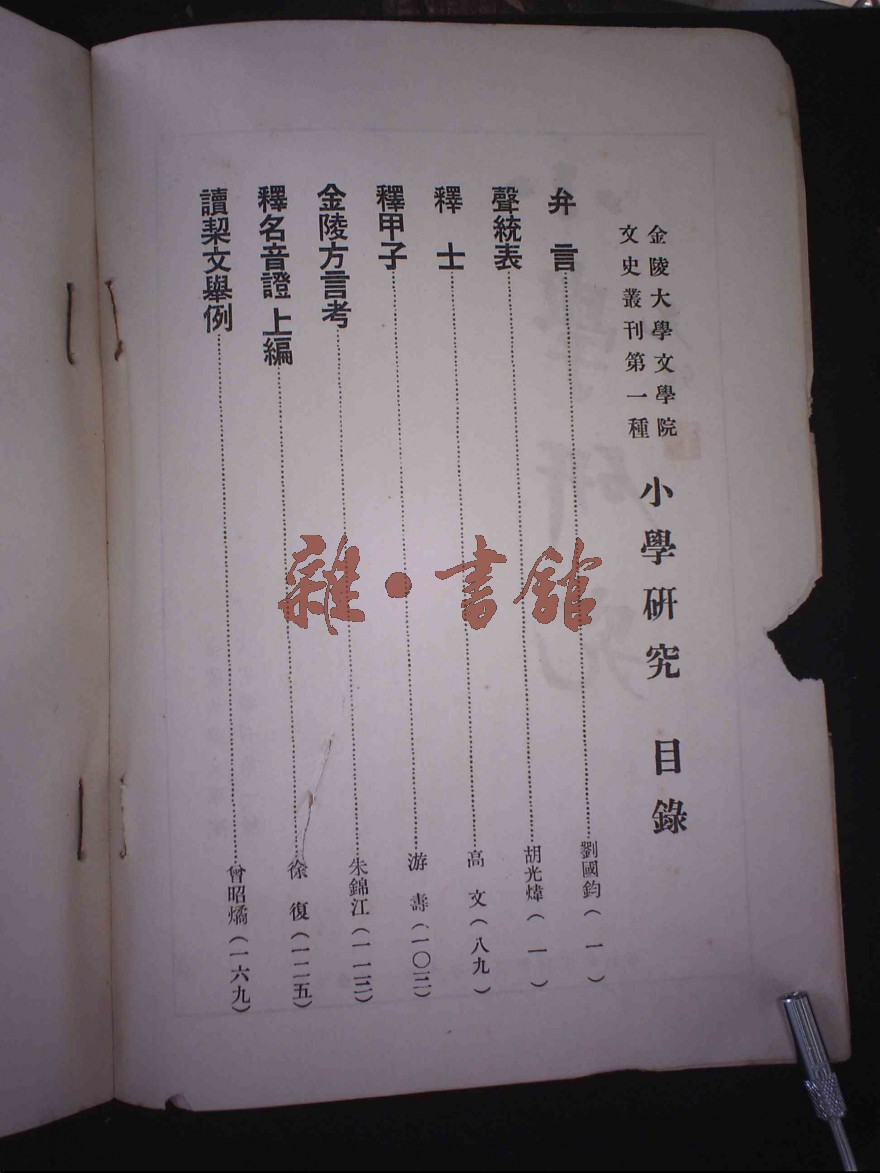 金陵大學文學院
文史叢刊第一種
小學研究 目錄
弁言……劉國鈞(一)
聲統表……胡光煒(一)
釋士……高文(八九)
釋甲子……游壽(一〇三)
金陵方言考……朱錦江(一一三)
釋名音證 上編……徐復(一二五)
讀契文舉例……曾昭燏(一六九)
雜·書館